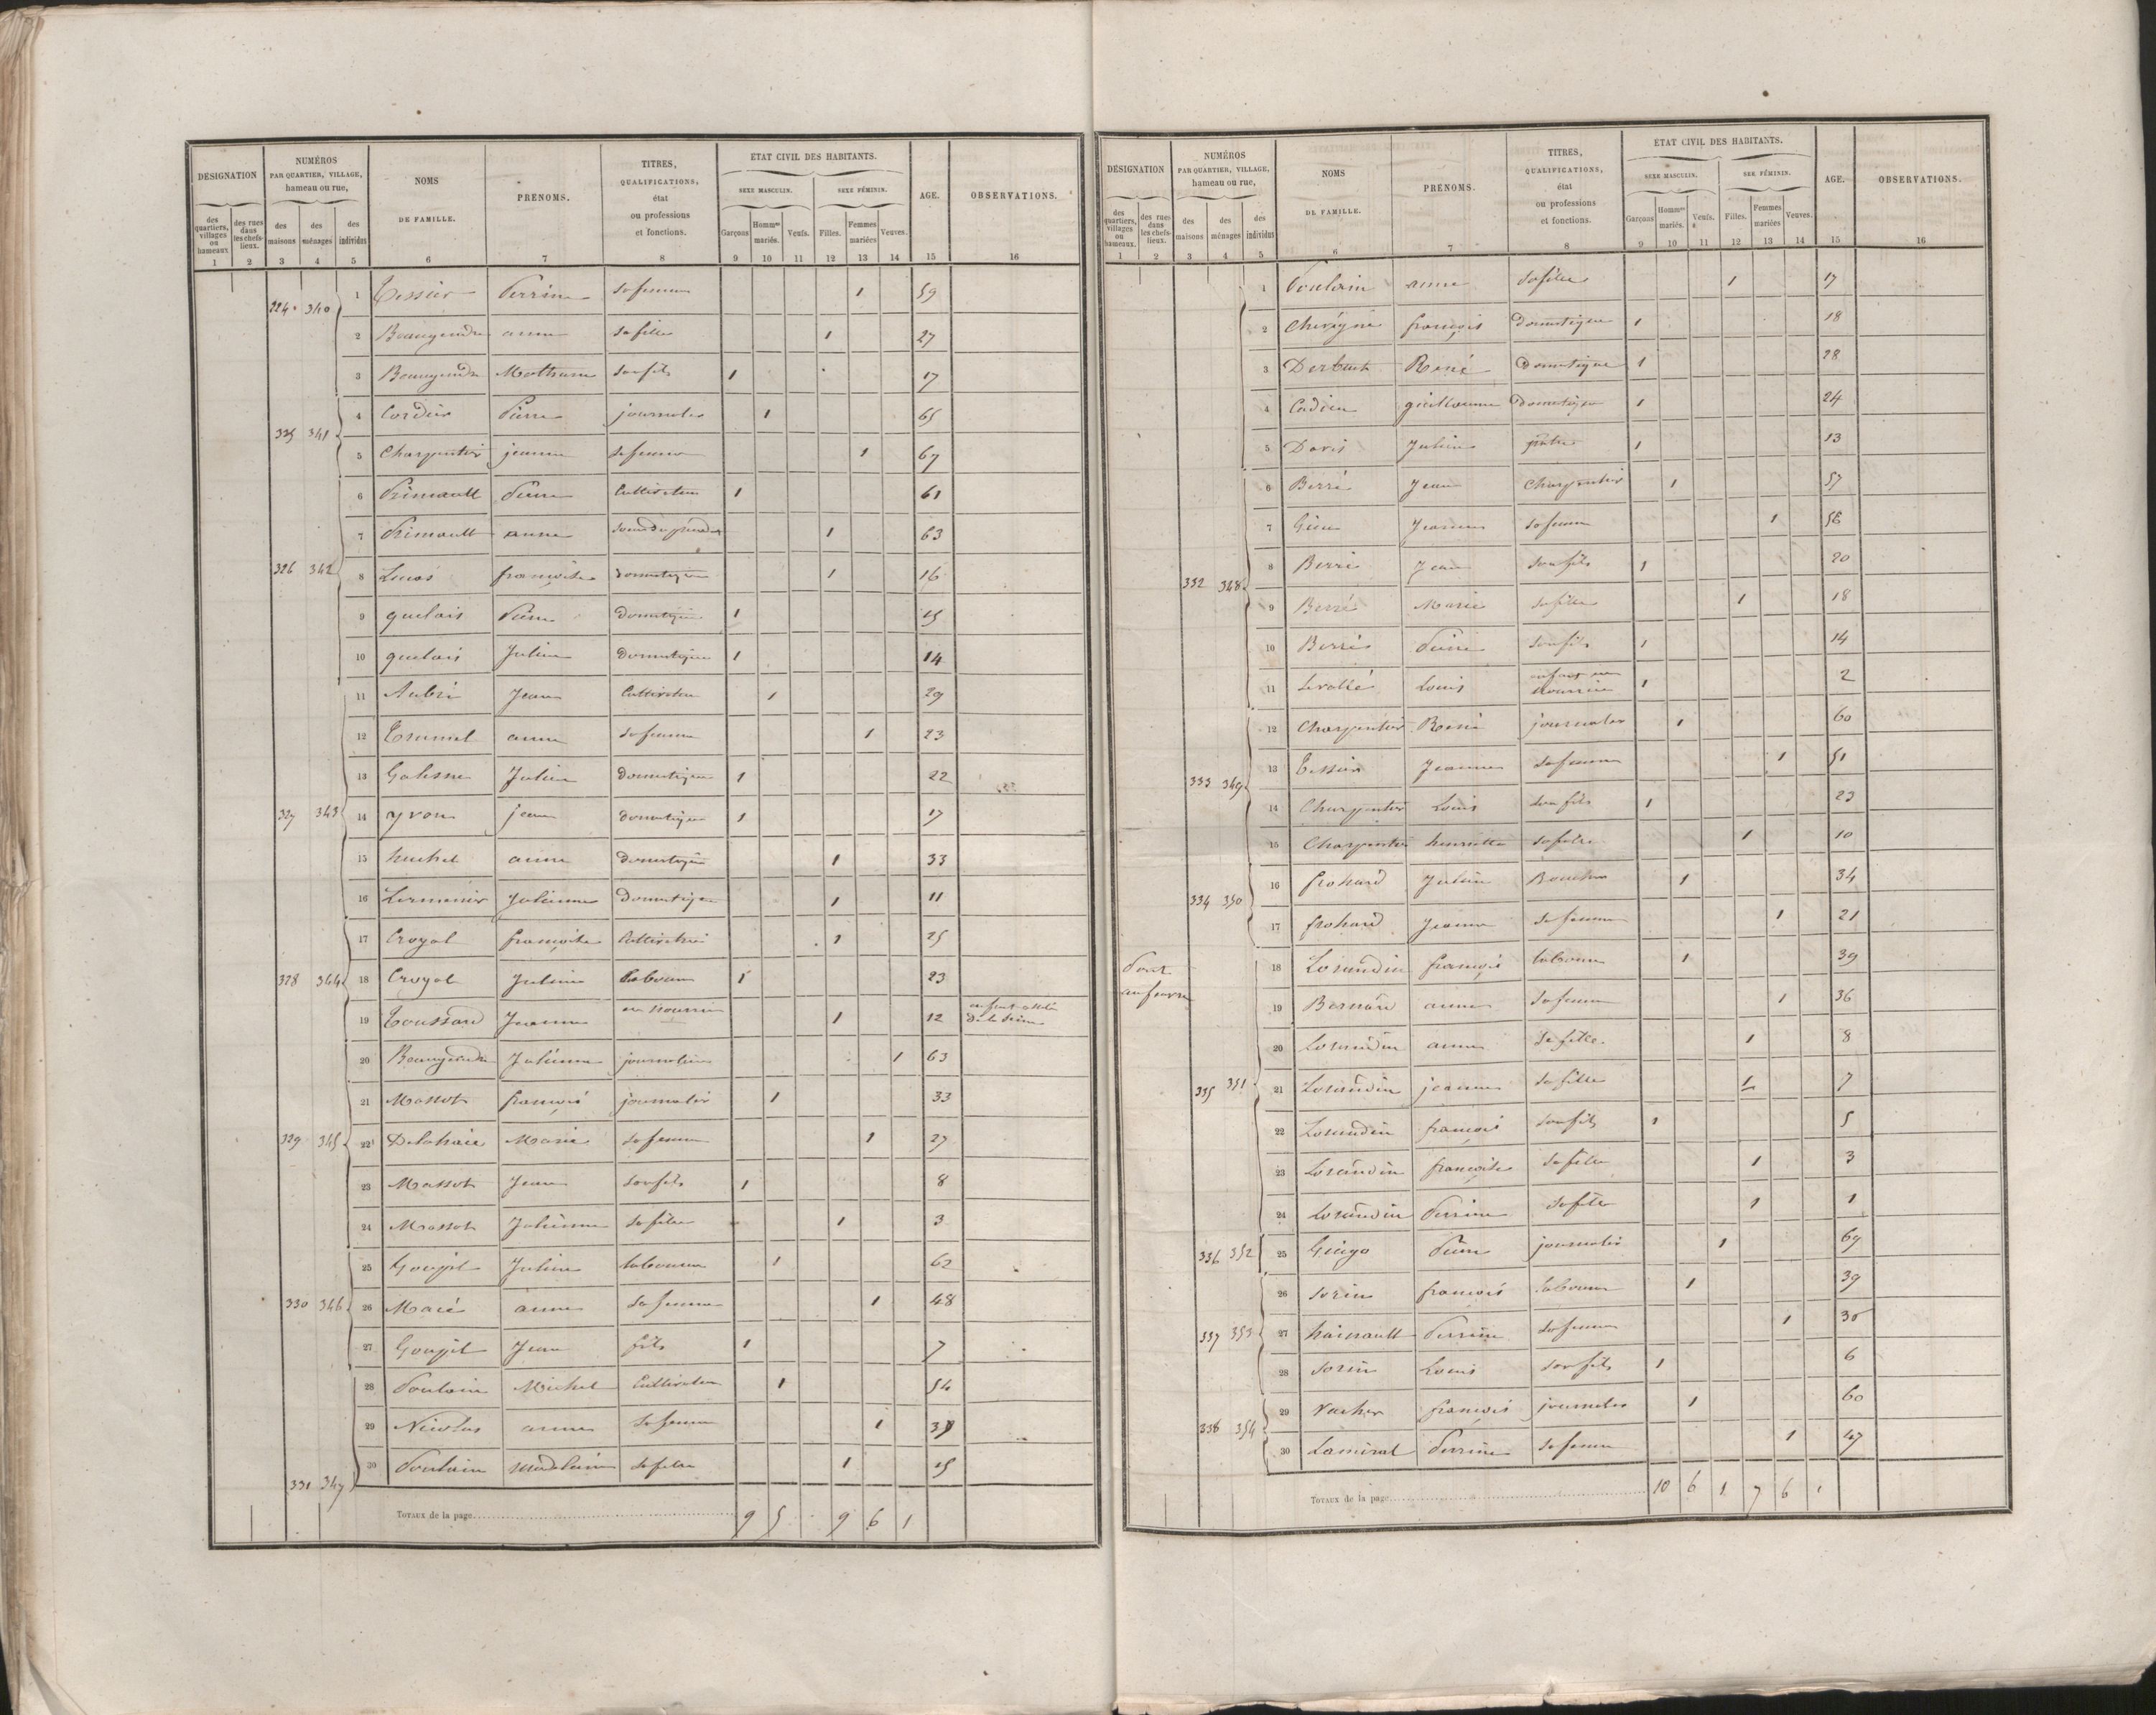 DÉSIGNATION NUMÉROS PAR QUARTIER, VILLAGE, hameau ou rue, NOMS DE FAMILLE. PRÉNOMS. TITRES, QUALIFICATIONS, état ou professions et fonctions. ÉTAT CIVIL DES HABITANTS. AGE. OBSERVATIONS.
SEXE MASCULIN. SEXE FÉMININ.
des quartiers, villages ou hameaux des rues dans les chefs-lieux. des maisons des ménages des individus Garçons Hommes mariés. Veufs. Filles. Femmes mariées Veuves.
1 2 3 4 5 6 7 8 9 10 11 12 13 14 15 16
324 340 1 Tessier Perrine sa femme 1 59
2 Beaugendre anne sa fille 1 27
3 Beaugendre Mathurin son fils 1 17
4 Cordier Pierre journalier 1 65
335 341 5 Charpentier jeanne sa femme 1 67
6 Primault Pierre Cultivateur 1 61
7 Primault anne 1 63
326 342 8 Lucas françoise domestique 1 16
9 quelais Pierre domestique 1 15
10 quelais Julien domestique 1 14
11 Aubré Jean Cultivateur 1 29
12 Tramel anne sa femme 1 23
13 Galesne Julien domestique 1 22
327 343 14 yvon jean domestique 1 17
15 huchet anne domestique 1 33
16 Lermenier Julienne domestique 1 11
17 Croyal françoise Cultivatrice 1 25
328 344 18 Croyal Julien laboureur 1 23
19 Toussard Jeanne en nourrice 1 12 enfant de la Seine
20 Beaugendre Julienne journalière 1 63
21 Massot françois journalier 1 33
329 345 22 Delahaie Marie sa femme 1 27
23 Massot Jean son fils 1 8
24 Massot Julienne sa fille 1 3
25 Goupil Julien laboureur 1 62
330 346 26 Macé anne sa femme 1 48
27 Goupil Jean fils 1 7
28 Poulain Michel Cultivateur 1 54
29 Nicolas anne sa femme 1 39
331 347 30 Poulain Madelaine sa fille 1 15
TOTAUX de la page 9 5 9 6 1
DÉSIGNATION NUMÉROS PAR QUARTIER, VILLAGE, hameau ou rue, NOMS DE FAMILLE. PRÉNOMS. TITRES, QUALIFICATIONS, état ou professions et fonctions. ÉTAT CIVIL DES HABITANTS. AGE. OBSERVATIONS.
SEXE MASCULIN. SEXE FÉMININ.
des quartiers, villages ou hameaux. des rues dans les chefs-lieux. des maisons des ménages des individus Garçons Hommes mariés. Veufs. Filles. Femmes mariées Veuves.
1 2 3 4 5 6 7 8 9 10 11 12 13 14 15 16
1 Poulain anne sa fille 1 17
2 Chevigné françois domestique 1 18
3 René domestique 1 28
4 Cadieu guillaume domestique 1 24
5 Davis Julien 1 13
6 Berré Jean Charpentier 1 57
7 Jeanne sa femme 1 56
8 Berré Jean son fils 1 20
332 348 9 Berré Marie sa fille 1 18
10 Berré Pierre son fils 1 14
11 Levallé Louis enfant en nourrice 1 2
12 Charpentier René journalier 1 60
13 Tessier Jeanne sa femme 1 51
333 349 14 Charpentier Louis son fils 1 23
15 Charpentier henriette sa fille 1 10
334 350 16 frohard Julien Boucher 1 34
17 frohard Jeanne sa femme 1 21
Pont 18 Lorandin françois laboureur 1 39
19 Bernard anne sa femme 1 36
20 Lorandin anne sa fille 1 8
335 351 21 Lorandin jeanne sa fille 1 7
22 Lorandin françois son fils 1 5
23 Lorandin françoise sa fille 1 3
24 Lorandin Perrine sa fille 1 1
336 352 25 Guigo Pierre journalier 1 69
26 Sorin françois laboureur 1 39
337 353 27 hainault Perrine sa femme 1 30
28 Sorin Louis son fils 1 6
29 Vacher françois journalier 1 60
338 354 30 Lamiral Perrine sa femme 1 47
TOTAUX de la page 10 6 1 7 6 1